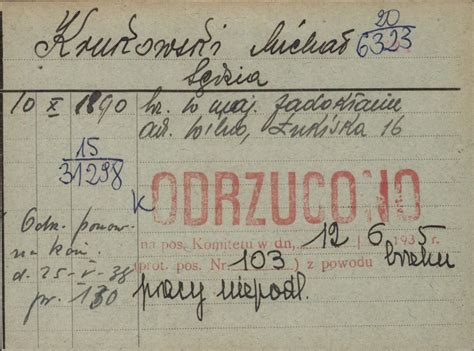 Krukowski Michał 20
6323
Sędzia
10 X 1890 ur. w maj.
ad. Wilno, Łukiska 16
15
31298
K ODRZUCONO
Odrz. ponow.
na pos. Komitetu w dn. 12 | 6 193 5 r.
na kom.
(prot. pos. Nr. 103) z powodu braku
d. 25-V-38
pr. 130
pracy niepodl.